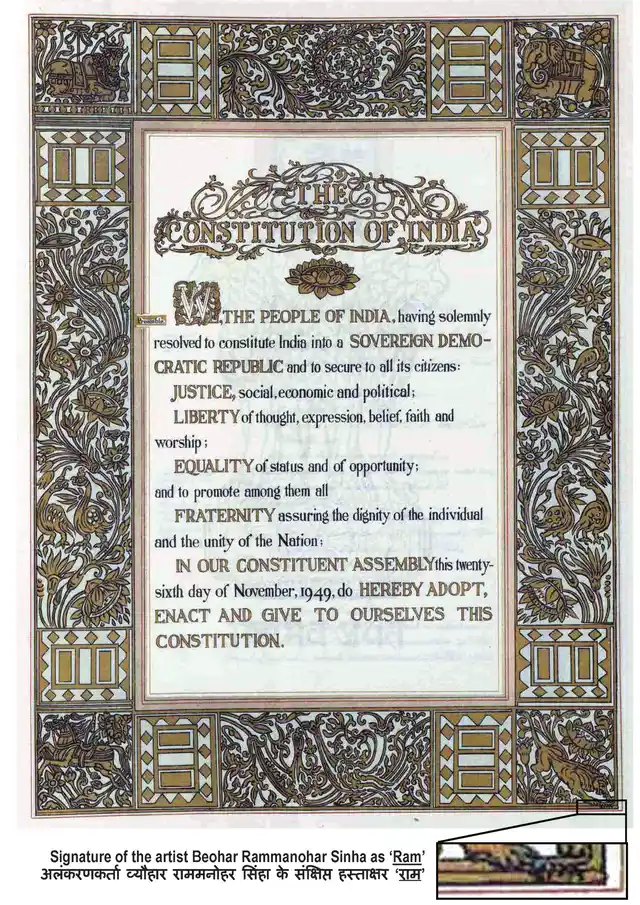 THE
CONSTITUTION OF INDIA
WE, THE PEOPLE OF INDIA, having solemnly
resolved to constitute India into a SOVEREIGN DEMO-
CRATIC REPUBLIC and to secure to all its citizens:
JUSTICE, social, economic and political;
LIBERTY of thought, expression, belief, faith and
worship;
EQUALITY of status and of opportunity;
and to promote among them all
FRATERNITY assuring the dignity of the individual
and the unity of the Nation;
IN OUR CONSTITUENT ASSEMBLY this twenty-
sixth day of November, 1949, do HEREBY ADOPT,
ENACT AND GIVE TO OURSELVES THIS
CONSTITUTION.
Signature of the artist Beohar Rammanohar Sinha as ‘Ram’
अलंकरणकर्ता ब्यौहार राममनोहर सिंहा के संक्षिप्त हस्ताक्षर ‘राम’